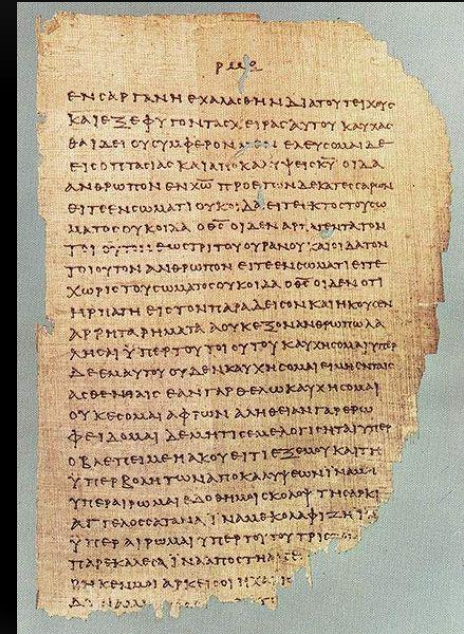 ΕΝ ΣΑΡΓΑΝΗ ΕΧΑΛΑΣΘΗΝ ΔΙΑ ΤΟΥ ΤΕΙΧΟΥΣ
ΚΑΙ ΕΞΕΦΥΓΟΝ ΤΑΣ ΧΕΙΡΑΣ ΑΥΤΟΥ ΚΑΥΧΑΣ
ΘΑΙ ΔΕΙ ΟΥ ΣΥΜΦΕΡΟΝ ΜΕΝ ΕΛΕΥΣΟΜΑΙ ΔΕ
ΕΙΣ ΟΠΤΑΣΙΑΣ ΚΑΙ ΑΠΟΚΑΛΥΨΕΙΣ Κ̅Υ̅ ΟΙΔΑ
ΑΝΘΡΩΠΟΝ ΕΝ Χ̅Ω̅ ΠΡΟ ΕΤΩΝ ΔΕΚΑΤΕΣΣΑΡΩΝ
ΕΙΤΕ ΕΝ ΣΩΜΑΤΙ ΟΥΚ ΟΙΔΑ ΕΙΤΕ ΕΚΤΟΣ ΤΟΥ ΣΩ
ΜΑΤΟΣ ΟΥΚ ΟΙΔΑ Ο Θ̅Σ̅ ΟΙΔΕΝ ΑΡΠΑΓΕΝΤΑ ΤΟΝ
ΤΟΙΟΥΤΟΝ ΕΩΣ ΤΡΙΤΟΥ ΟΥΡΑΝΟΥ ΚΑΙ ΟΙΔΑ ΤΟΝ
ΤΟΙΟΥΤΟΝ ΑΝΘΡΩΠΟΝ ΕΙΤΕ ΕΝ ΣΩΜΑΤΙ ΕΙΤΕ
ΧΩΡΙΣ ΤΟΥ ΣΩΜΑΤΟΣ ΟΥΚ ΟΙΔΑ Ο Θ̅Σ̅ ΟΙΔΕΝ ΟΤΙ
ΗΡΠΑΓΗ ΕΙΣ ΤΟΝ ΠΑΡΑΔΕΙΣΟΝ ΚΑΙ ΗΚΟΥΣΕΝ
ΑΡΡΗΤΑ ΡΗΜΑΤΑ Α ΟΥΚ ΕΞΟΝ ΑΝΘΡΩΠΩ ΛΑ
ΛΗΣΑΙ ΫΠΕΡ ΤΟΥ ΤΟΙΟΥΤΟΥ ΚΑΥΧΗΣΟΜΑΙ ΥΠΕΡ
ΔΕ ΕΜΑΥΤΟΥ ΟΥΔΕΝ ΚΑΥΧΗΣΟΜΑΙ ΕΙ ΜΗ ΕΝ ΤΑΙΣ
ΑΣΘΕΝΙΑΙΣ ΕΑΝ ΓΑΡ ΘΕΛΩ ΚΑΥΧΗΣΟΜΑΙ
ΟΥΚ ΕΣΟΜΑΙ ΑΦΡΩΝ ΑΛΗΘΕΙΑΝ ΓΑΡ ΕΡΩ
ΦΕΙΔΟΜΑΙ ΔΕ ΜΗ ΤΙΣ ΕΜΕ ΛΟΓΙΣΗΤΑΙ ΥΠΕΡ
Ο ΒΛΕΠΕΙ ΜΕ Η ΑΚΟΥΕΙ ΤΙ ΕΞ ΕΜΟΥ ΚΑΙ ΤΗ
ΫΠΕΡΒΟΛΗ ΤΩΝ ΑΠΟΚΑΛΥΨΕΩΝ ΪΝΑ ΜΗ
ΥΠΕΡΑΙΡΩΜΑΙ ΕΔΟΘΗ ΜΟΙ ΣΚΟΛΟΨ ΤΗ ΣΑΡΚΙ
ΑΓΓΕΛΟΣ ΣΑΤΑΝΑ ΪΝΑ ΜΕ ΚΟΛΑΦΙΖΗ ΪΝΑ
ΫΠΕΡΑΙΡΩΜΑΙ ΥΠΕΡ ΤΟΥΤΟΥ ΤΡΙΣ
ΠΑΡΕΚΑΛΕΣΑ ΪΝΑ ΑΠΟΣΤΗ
ΡΗΚΕΝ ΜΟΙ ΑΡΚΕΙ ΣΟΙ Η ΧΑΡΙΣ